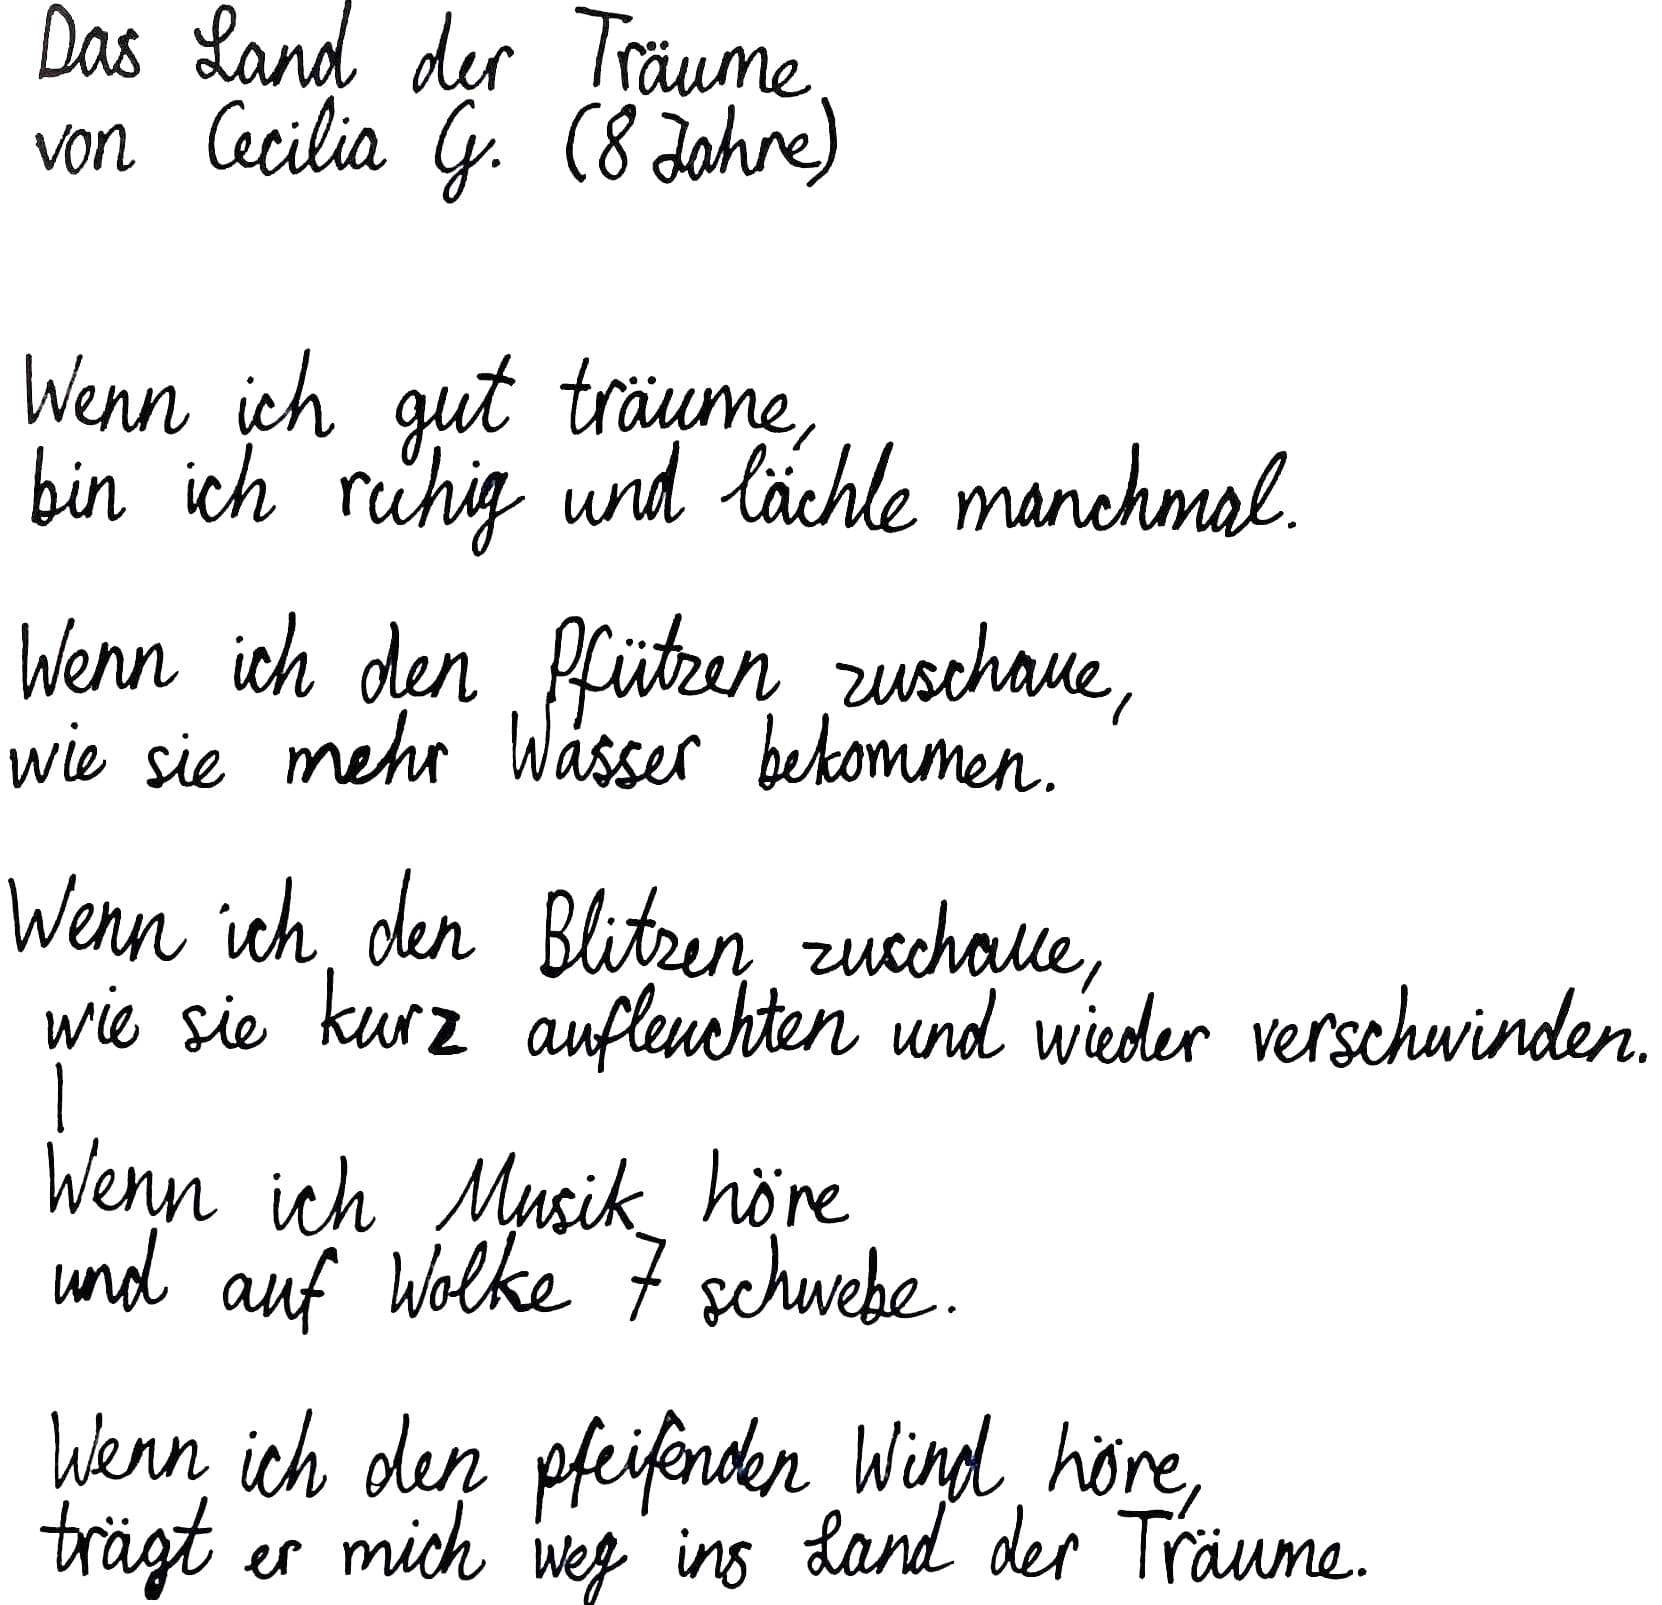 Das Land der Träume
von Cecilia G. (8 Jahre)
Wenn ich gut träume,
bin ich ruhig und lächle manchmal.
Wenn ich den Pfützen zuschaue,
wie sie mehr Wasser bekommen.
Wenn ich den Blitzen zuschaue,
wie sie kurz aufleuchten und wieder verschwinden.
Wenn ich Musik höre
und auf Wolke 7 schwebe.
Wenn ich den pfeifenden Wind höre,
trägt er mich weg ins Land der Träume.